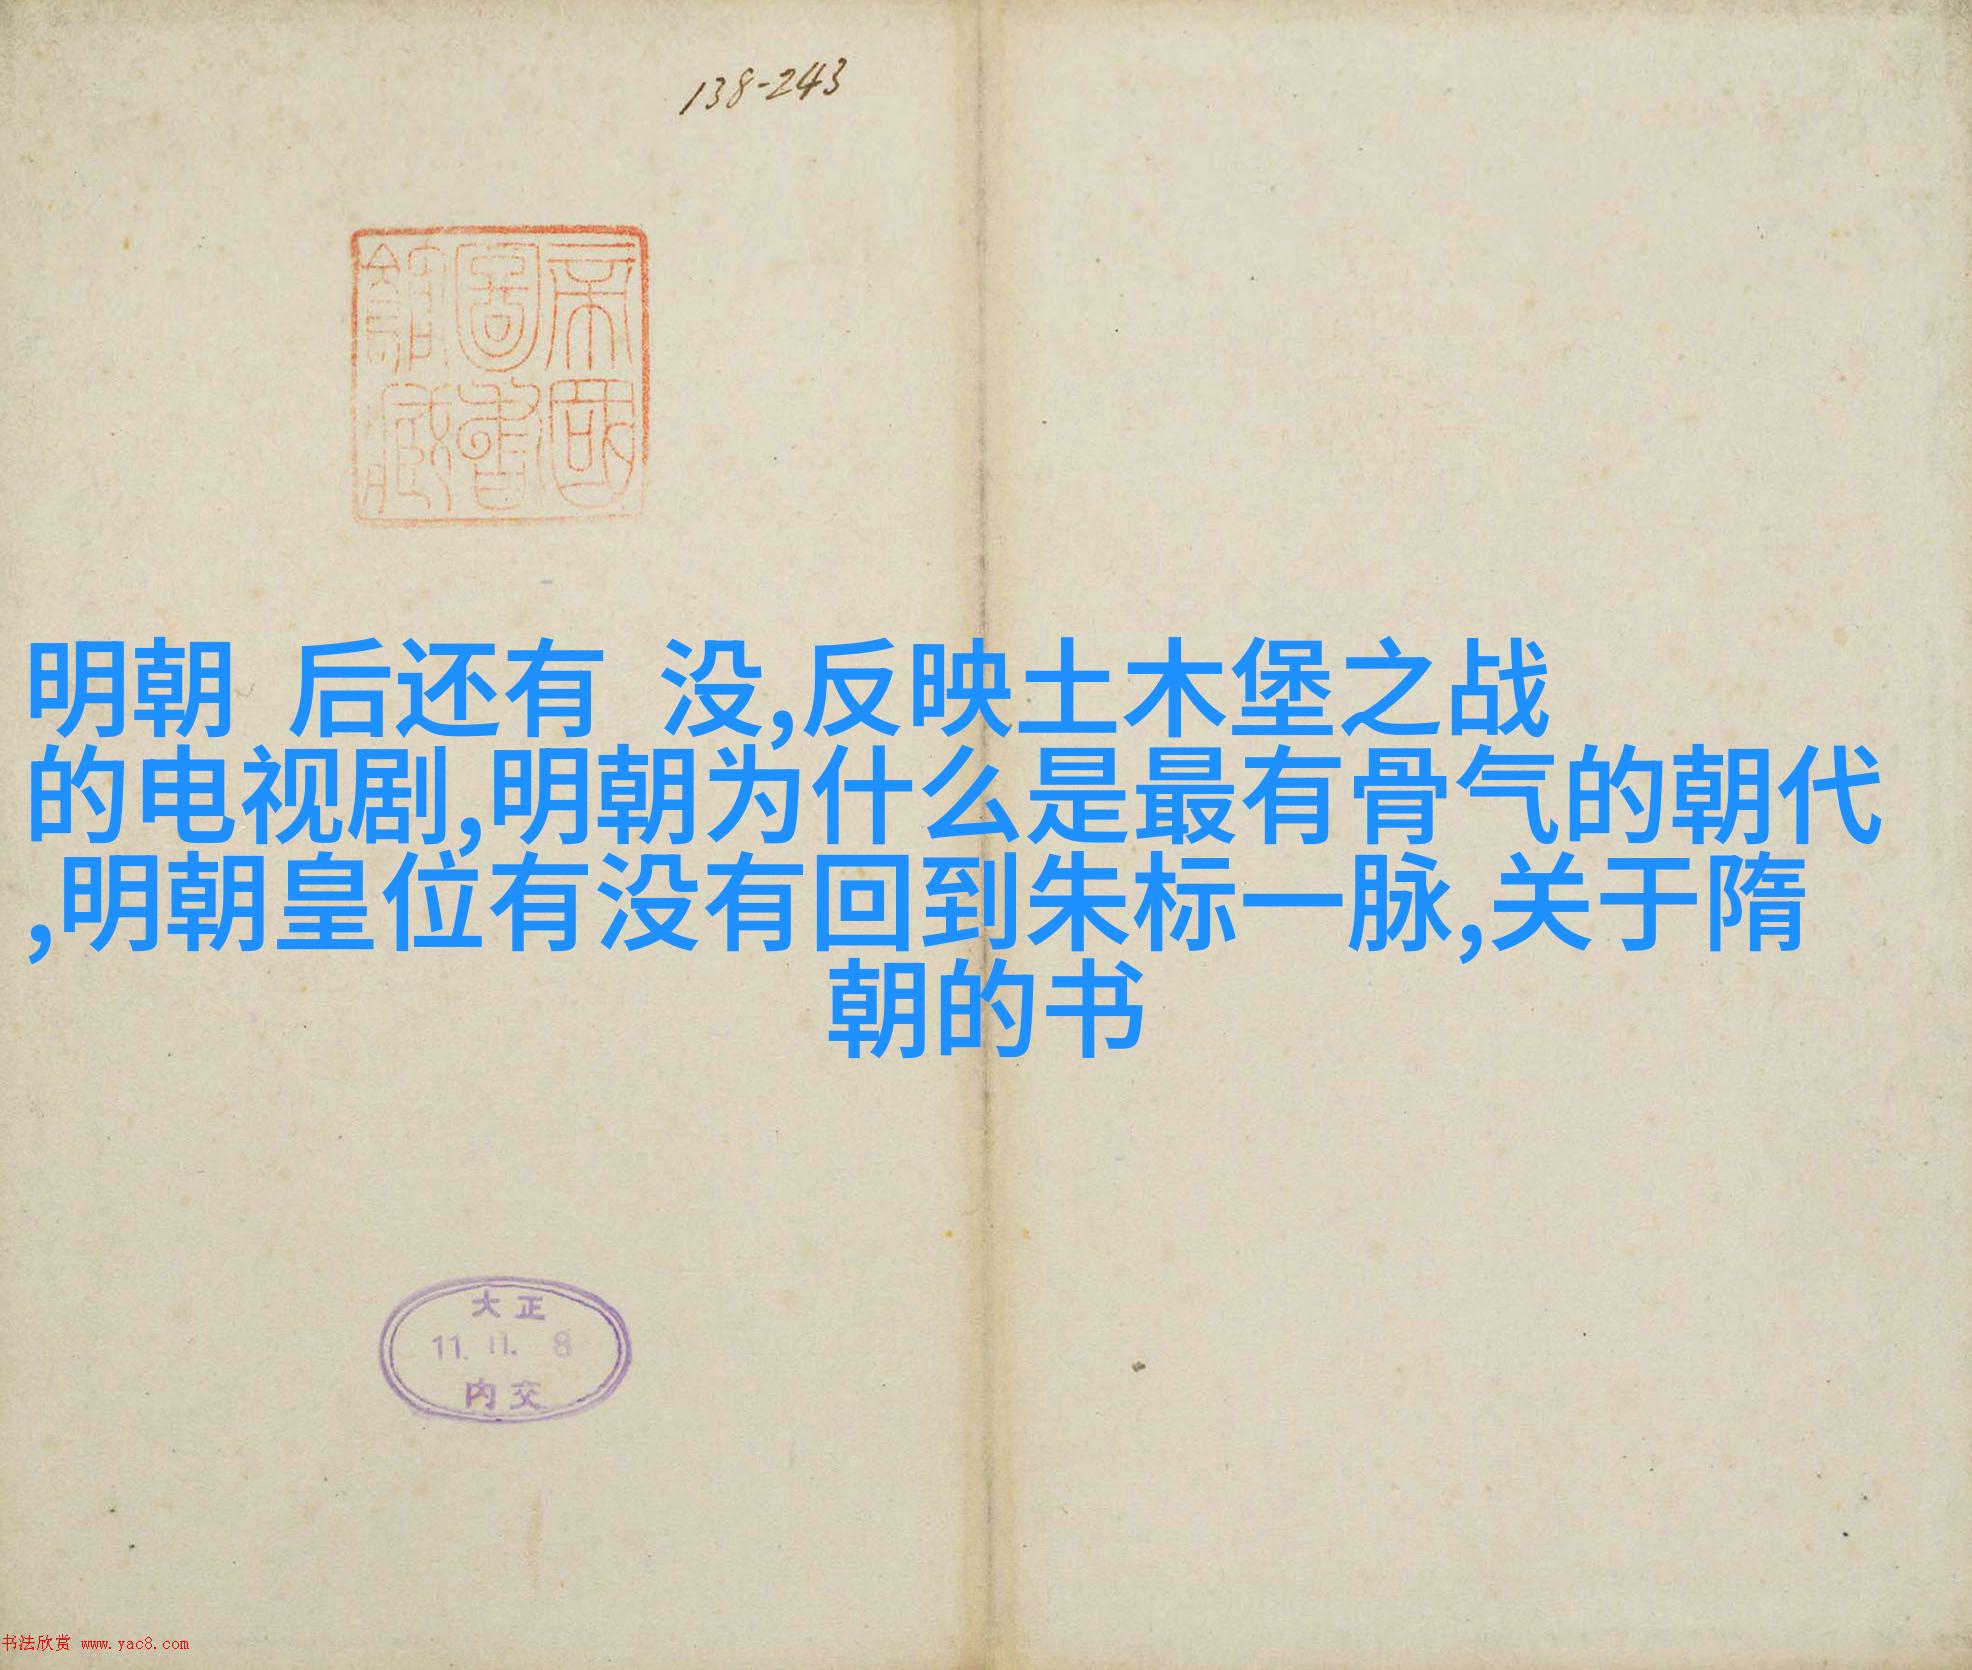 138-243
帝國
圖書
館藏
明朝 后还有 没,反映土木堡之战
的电视剧,明朝为什么是最有骨气的朝代
,明朝皇位有没有回到朱标一脉,关于隋
朝的书
大正
11.11.8
内交
书法欣赏 www.yac8.com